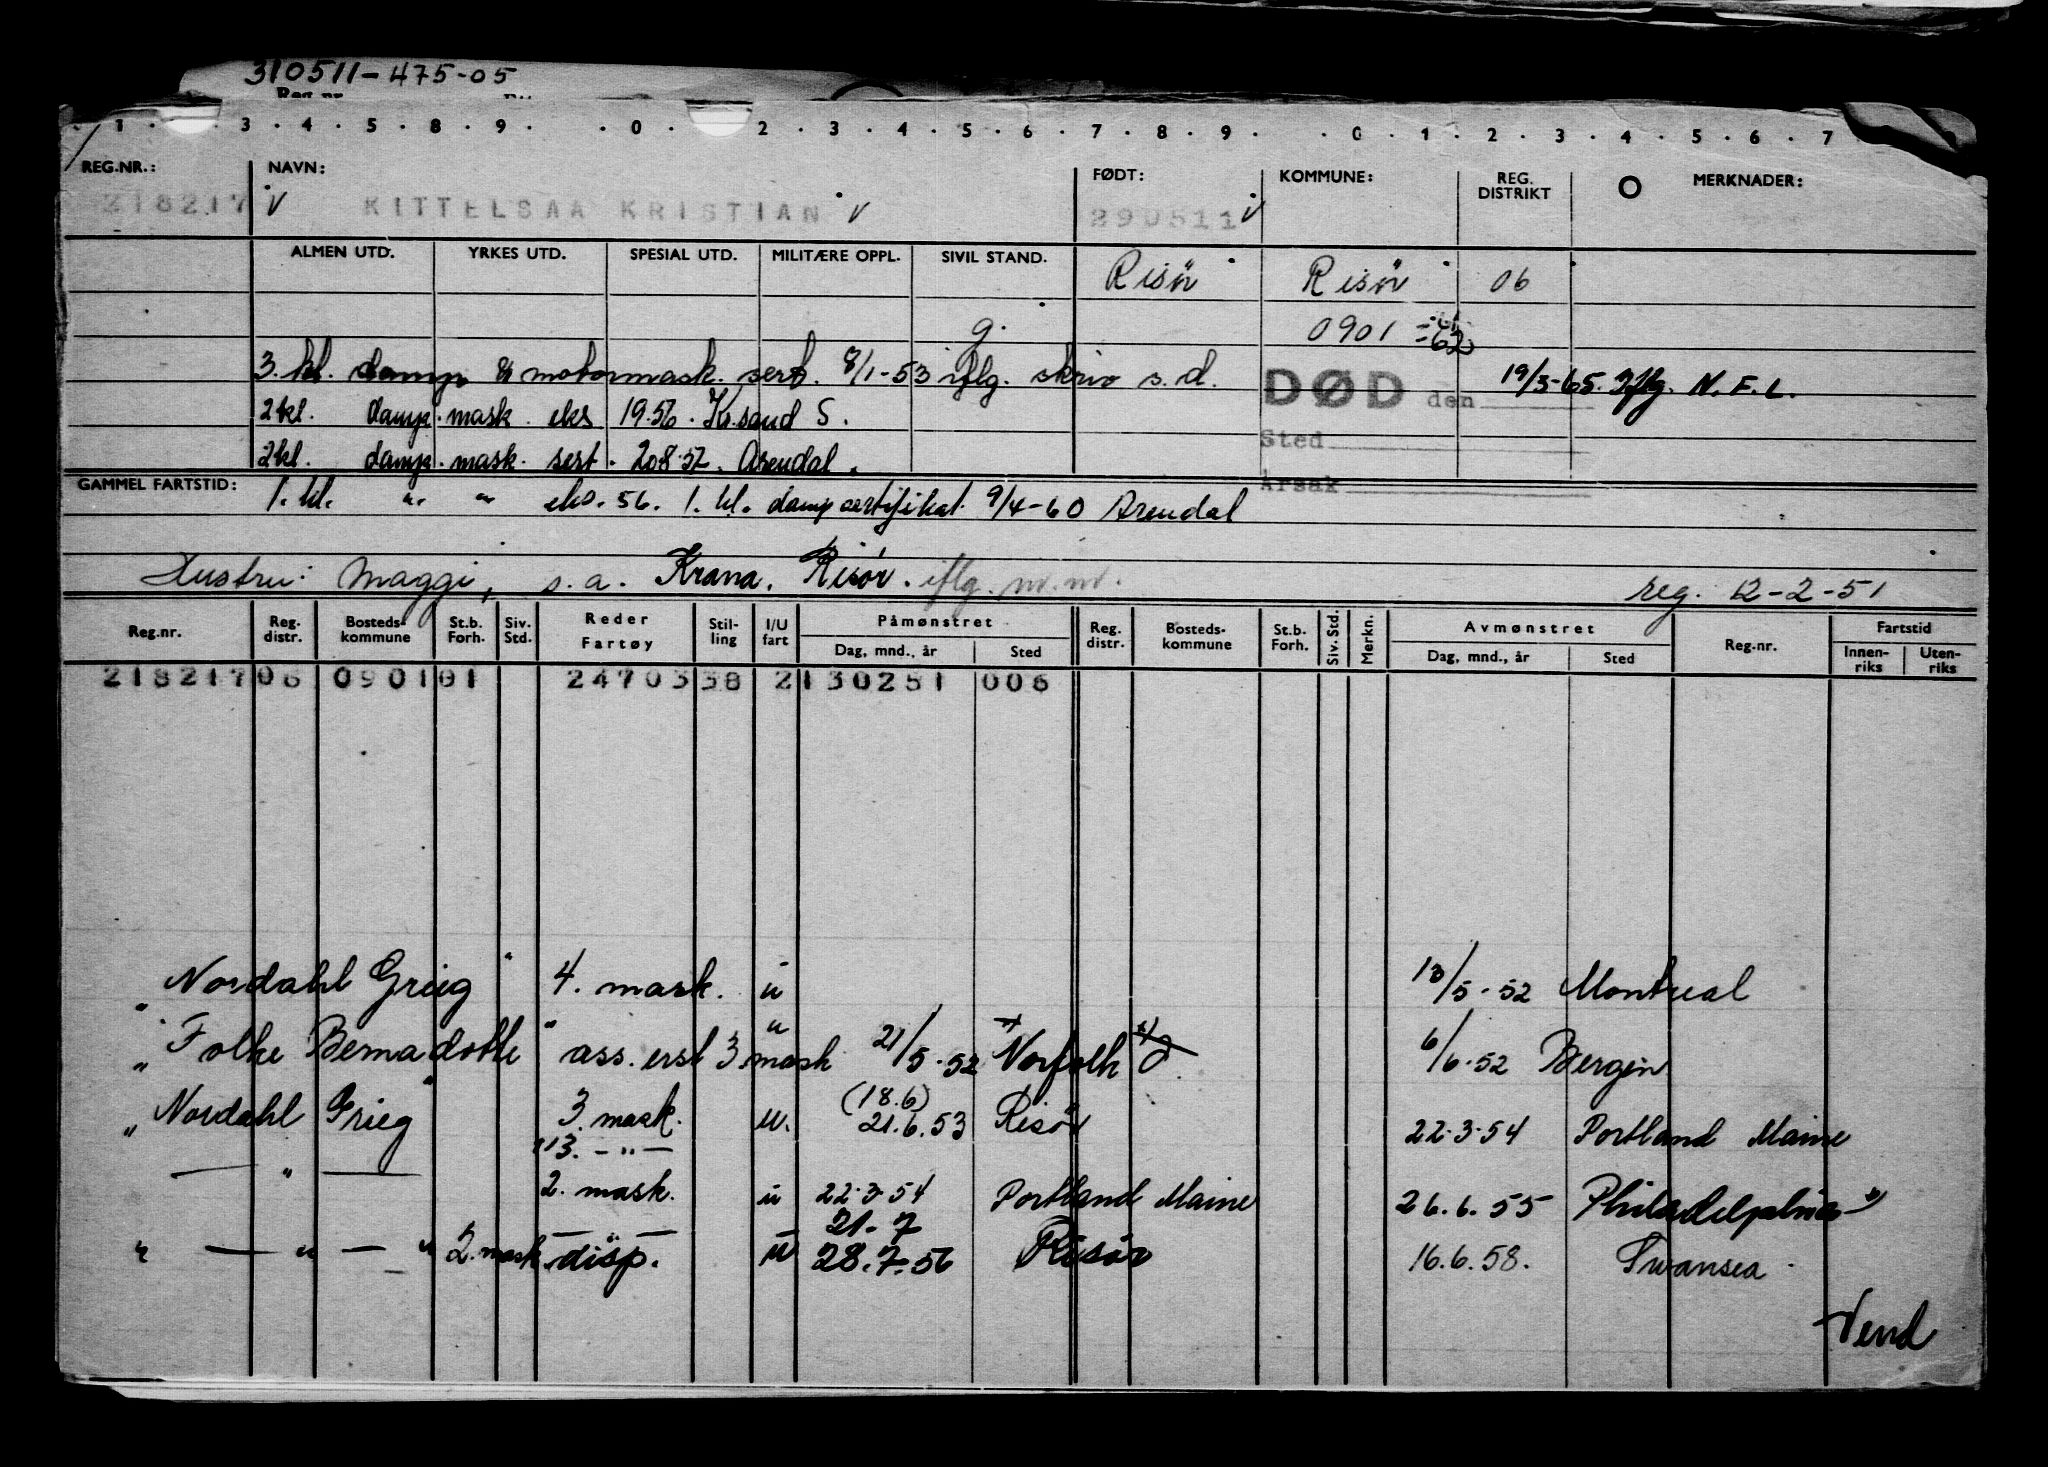 310511-475-05
Reg.nr.
1 . . . 3 . 4 . 5 . 8 . 9 . . 0 . . 2 . 3 . 4 . 5 . 6 . 7 . 8 . 9 . . 0 . 1 . 2 . 3 . 4 . 5 . 6 . 7
REG.NR.: NAVN: FØDT: KOMMUNE: REG. DISTRIKT O MERKNADER:
218217 KITTELSAA KRISTIAN 290511
ALMEN UTD. YRKES UTD. SPESIAL UTD. MILITÆRE OPPL. SIVIL STAND. Risör Risör 06
g. 0901 =62
3. kl. damp & motormask. sert. 8/1-53 iflg. skriv s.d.
DØD den 19/3-65. Iflg. N.F.L.
2kl. damp. mask. eks 19.56. Kr.sand S.
Sted
2kl. damp. mask. sert. 20.8.57. Arendal.
Årsak
GAMMEL FARTSTID: 1. kl. " " eks. 56. 1. kl. damp certifikat 9/4-60 Arendal
Hustru: Maggi, s.a. Krana, Risör. iflg. m.m. reg. 12-2-51
Reg.nr. Reg. distr. Bosteds-kommune St.b. Forh. Siv. Std. Reder Fartøy Stil-ling I/U fart Påmønstret Dag, mnd., år Sted Reg. distr. Bosteds-kommune St.b. Forh. Siv. Std. Merkn. Avmønstret Dag, mnd., år Sted Reg.nr. Fartstid Innen-riks Uten-riks
218217 06 0901 01 24703 38 2 130251 006
" Nordahl Grieg " 4. mask. u 13/5-52 Montreal
" Folke Bernadotte " ass. erst 3 mask u 21/5-52 Norfolk 6/6-52 Bergen
" Nordahl Grieg " 3. mask. u. (18.6) 21.6.53 Risör 22.3.54 Portland Maine
3. - " -
— " — 2. mask. u 22.3.54 Portland Maine 26.6.55 Philadelphia
21-7
" — " — " 2. mask. disp. u 28.7.56 Risör 16.6.58. Swansea
Vend